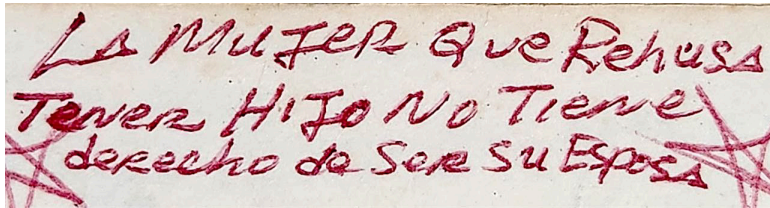 LA MUJER QUE ReHUSA
TeNeR HIJO NO TIENE
deRecho de SeR SU EsposA